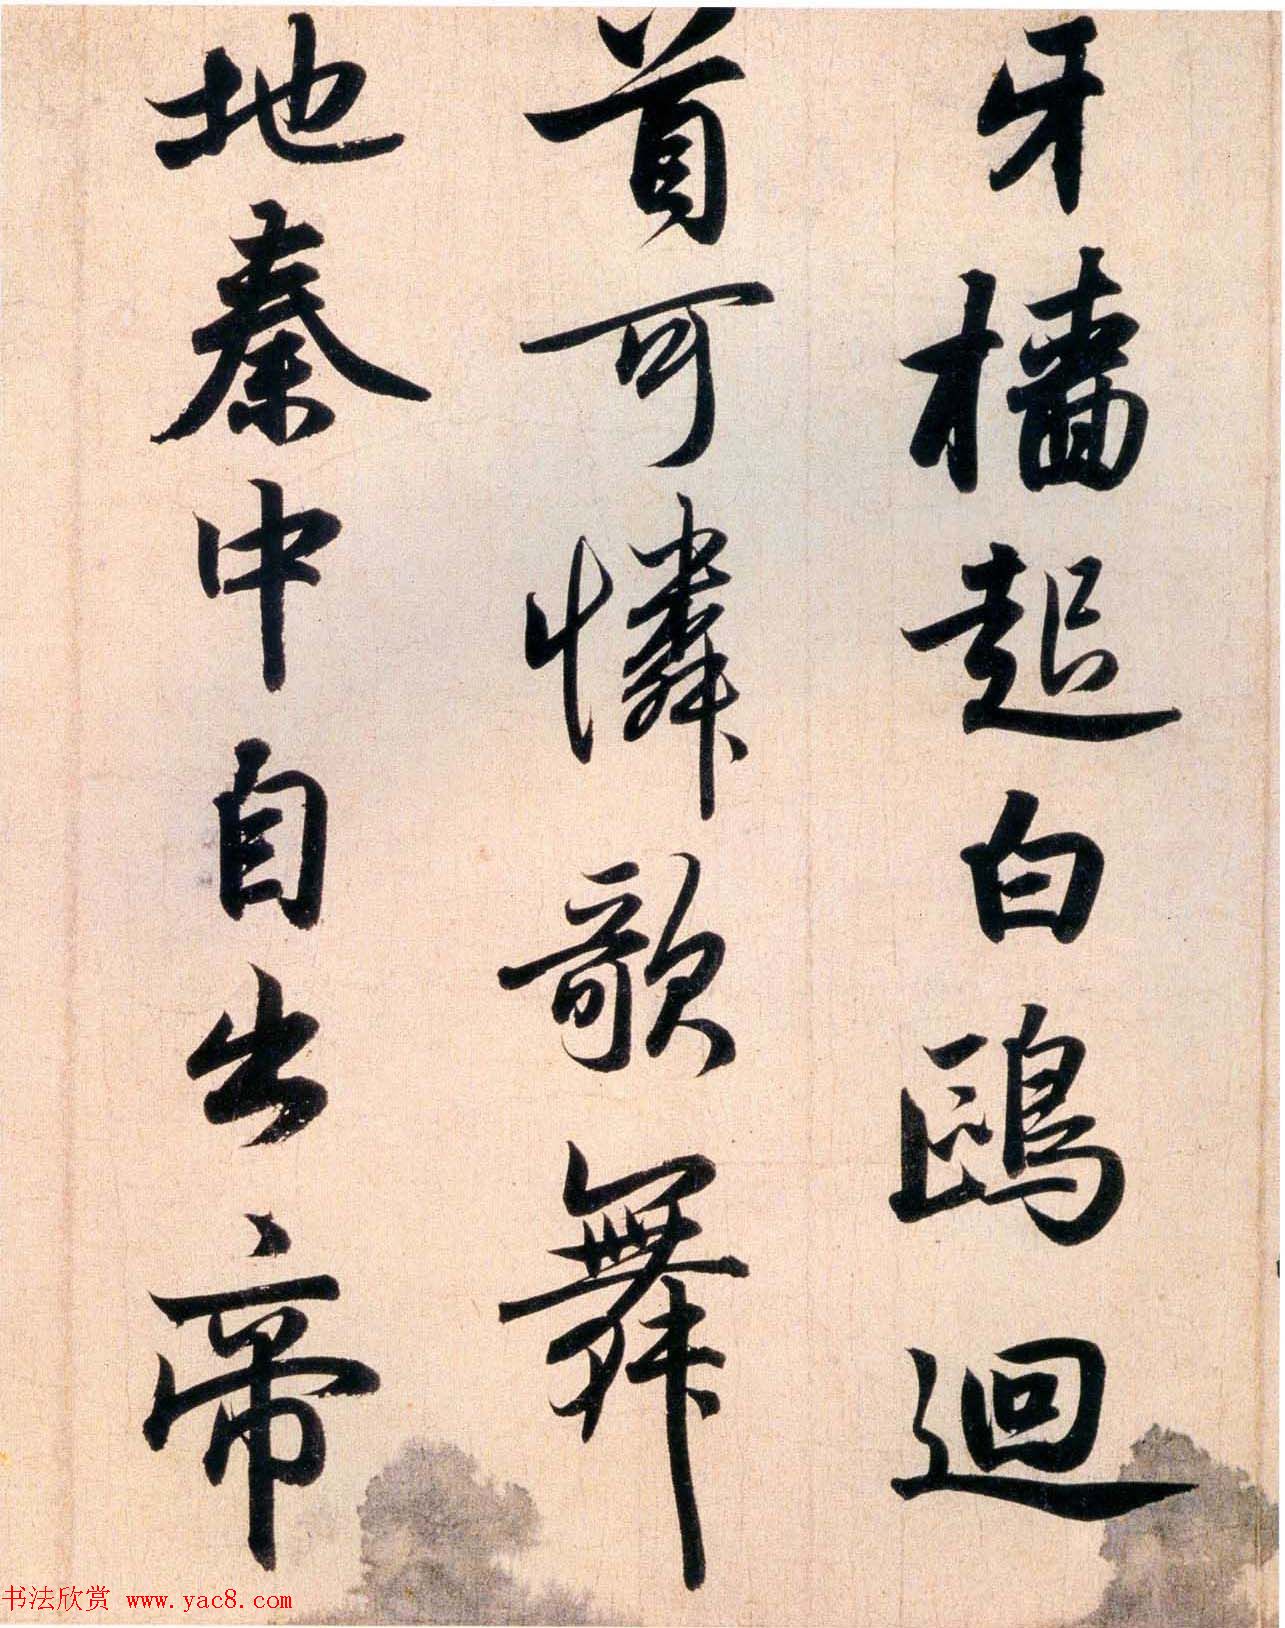 牙檣起白鷗迴
首可憐歌舞
地秦中自出帝
书法欣赏 www.yac8.com